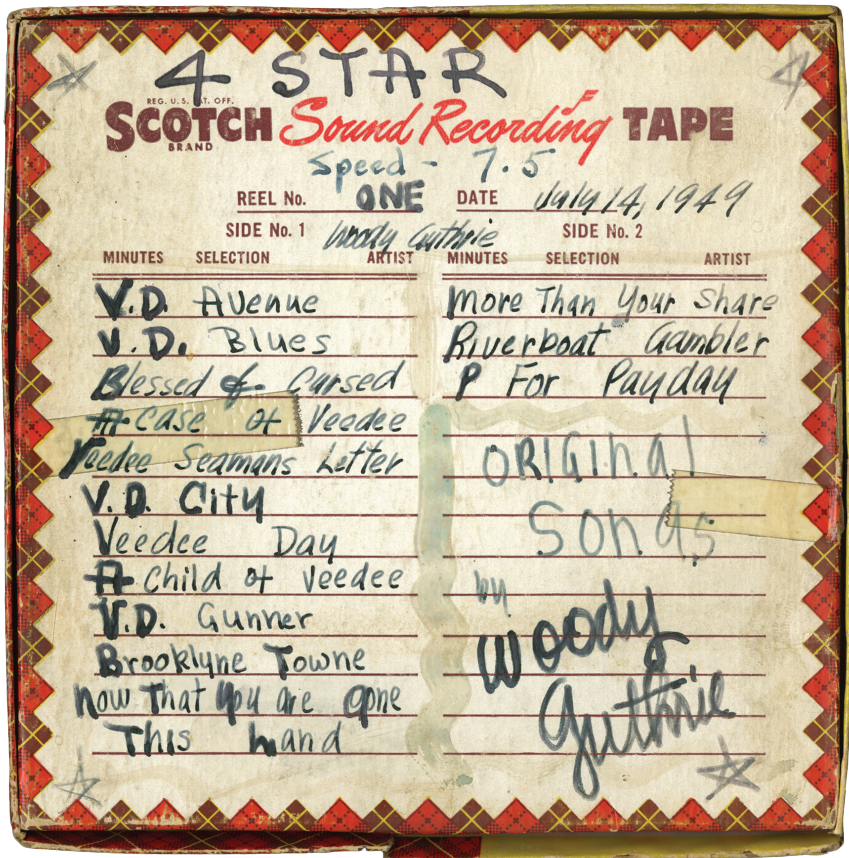 4 STAR
REG. U.S. PAT. OFF.
SCOTCH Sound Recording TAPE
BRAND
Speed - 7.5
REEL No. ONE DATE July 14, 1949
SIDE No. 1 Woody Guthrie SIDE No. 2
MINUTES SELECTION ARTIST MINUTES SELECTION ARTIST
V.D. Avenue
V.D. Blues
Blessed & Cursed
A Case of Veedee
Veedee Seamans Letter
V.D. City
Veedee Day
A Child of Veedee
V.D. Gunner
Brooklyne Towne
now That you are gone
This hand
More Than Your Share
Riverboat Gambler
P For Payday
ORIGINAl
Songs
by
Woody
Guthrie